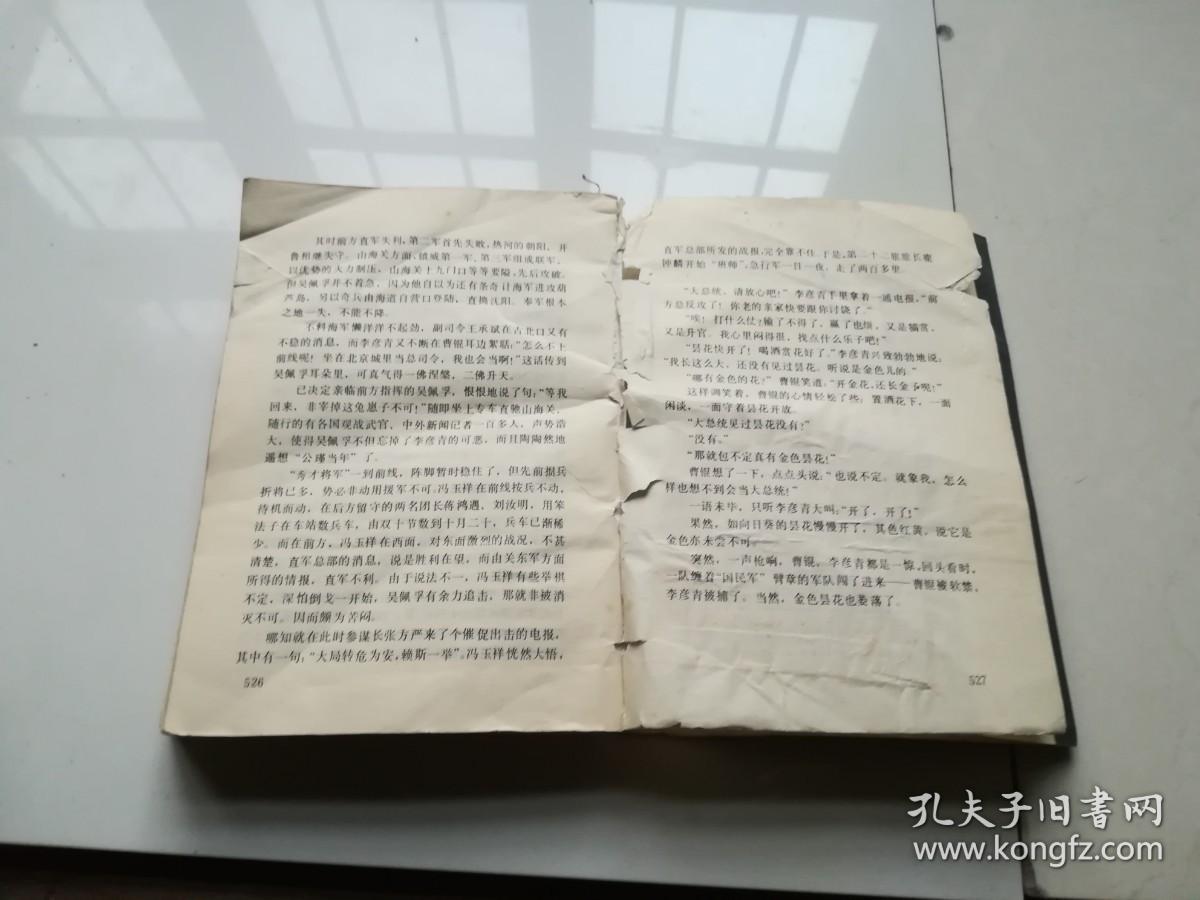 其时前方直军失利，第二军首先失败，热河的朝阳、开
鲁相继失守。山海关方面，镇威第一军、第三军组成联军，
以优势的火力制压，山海关十九门口等等要隘，先后攻破。
但吴佩孚并不着急，因为他自以为还有条奇计海军进攻葫
芦岛，另以奇兵由海道自营口登陆，直捣沈阳。奉军根本
之地一失，不能不降。
不料海军懒洋洋不起劲，副司令王承斌在古北口又有
不稳的消息，而李彦青又不断在曹锟耳边絮聒：“怎么不上
前线呢！坐在北京城里当总司令，我也会当啊！”这话传到
吴佩孚耳朵里，可真气得一佛涅槃，二佛升天。
已决定亲临前方指挥的吴佩孚，恨恨地说了句：“等我
回来，非宰掉这兔崽子不可！”随即坐上专车直驰山海关，
随行的有各国观战武官、中外新闻记者一百多人，声势浩
大，使得吴佩孚不但忘掉了李彦青的可恶，而且陶陶然地
遥想“公瑾当年”了。
“秀才将军”一到前线，阵脚暂时稳住了，但先前损兵
折将已多，势必非动用援军不可。冯玉祥在前线按兵不动，
待机而动，在后方留守的两名团长蒋鸿遇、刘汝明，用笨
法子在车站数兵车，由双十节数到十月二十，兵车已渐稀
少。而在前方，冯玉祥在西面，对东面激烈的战况，不甚
清楚，直军总部的消息，说是胜利在望，而由关东军方面
所得的情报，直军不利。由于说法不一，冯玉祥有些举棋
不定，深怕倒戈一开始，吴佩孚有余力追击，那就非被消
灭不可。因而颇为苦闷。
哪知就在此时参谋长张方严来了个催促出击的电报，
其中有一句：“大局转危为安，赖斯一举”。冯玉祥恍然大悟，
526
直军总部所发的战报，完全靠不住 于是，第二十二旅旅长鹿
钟麟开始“班师”，急行军一日一夜，走了两百多里。
“大总统，请放心吧！”李彦青手里拿着一通电报，“前
方总反攻了！你老的亲家快要跟你讨饶了。”
“唉！打什么仗？输了不得了，赢了也烦，又是犒赏，
又是升官。我心里闷得很，找点什么乐子吧！”
“昙花快开了！喝酒赏花好了。”李彦青兴致勃勃地说：
“我长这么大，还没有见过昙花。听说是金色儿的。”
“哪有金色的花？”曹锟笑道：“开金花，还长金子呢！”
这样调笑着，曹锟的心情轻松了些；置酒花下，一面
闲谈，一面守着昙花开放。
“大总统见过昙花没有？”
“没有。”
“那就包不定真有金色昙花！”
曹锟想了一下，点点头说：“也说不定。就象我，怎么
样也想不到会当大总统！”
一语未毕，只听李彦青大叫：“开了，开了！”
果然，如向日葵的昙花慢慢开了，其色红黄，说它是
金色亦未尝不可——
突然，一声枪响，曹锟、李彦青都是一惊，回头看时，
一队缠着“国民军”臂章的军队闯了进来——曹锟被软禁，
李彦青被捕了。当然，金色昙花也萎落了。
527
孔夫子旧书网
www.kongfz.com